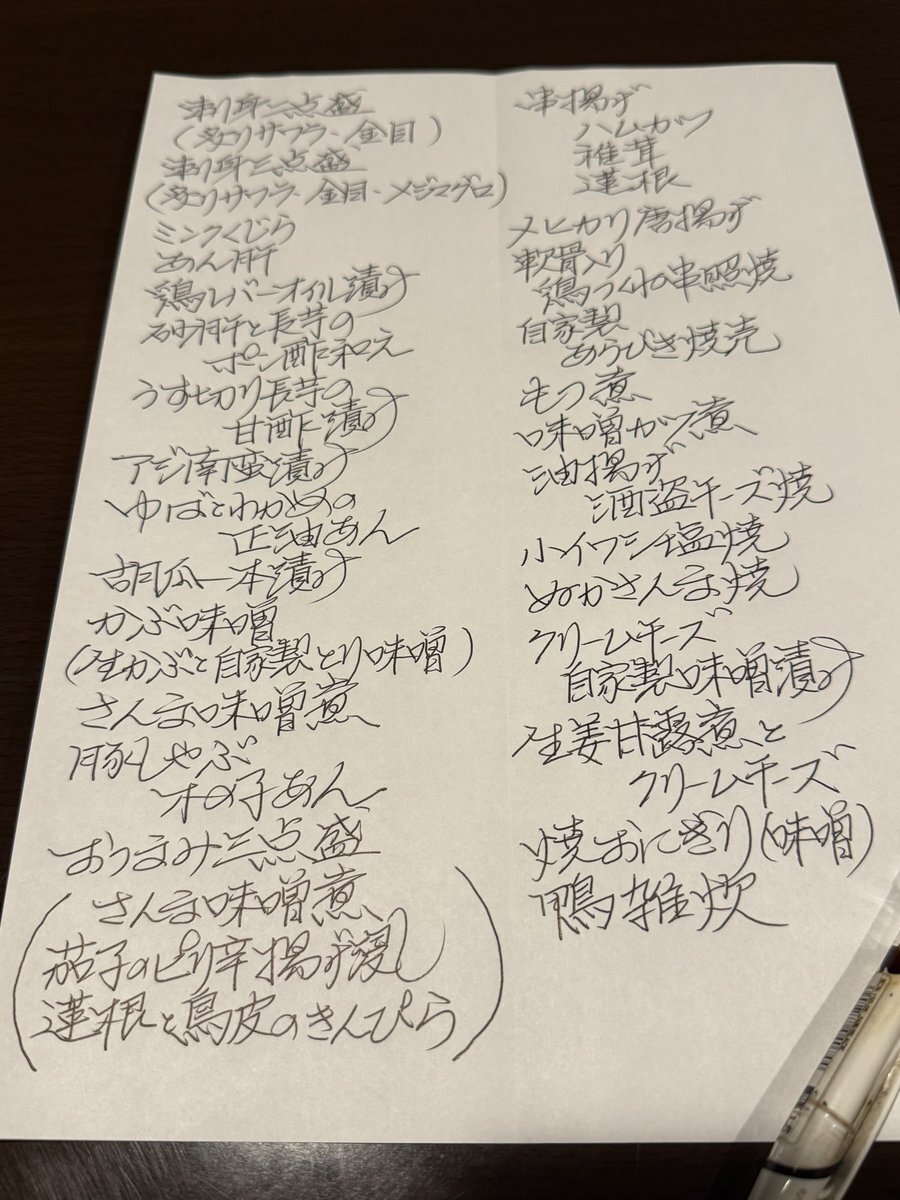 刺身二点盛
(炙りサワラ・金目)
刺身三点盛
(炙りサワラ・金目・メジマグロ)
ミンクくじら
あん肝
鶏レバーオイル漬け
砂肝と長芋の
ポン酢和え
うす切り長芋の
甘酢漬け
アジ南蛮漬け
ゆばとわかめの
正油あん
胡瓜一本漬け
かぶ味噌
(生かぶと自家製とり味噌)
さんま味噌煮
豚しゃぶ
木の子あん
おつまみ三点盛
さんま味噌煮
茄子のピリ辛揚げ浸し
蓮根と鳥皮のきんぴら
串揚げ
ハムカツ
椎茸
蓮根
メヒカリ唐揚げ
軟骨入り
鶏つくね串照焼
自家製
あらびき焼売
もつ煮
味噌カツ煮
油揚げ
酒盗チーズ焼
小イワシ塩焼
ぬかさんま焼
クリームチーズ
自家製味噌漬け
生姜甘露煮と
クリームチーズ
焼おにぎり(味噌)
鴨雑炊